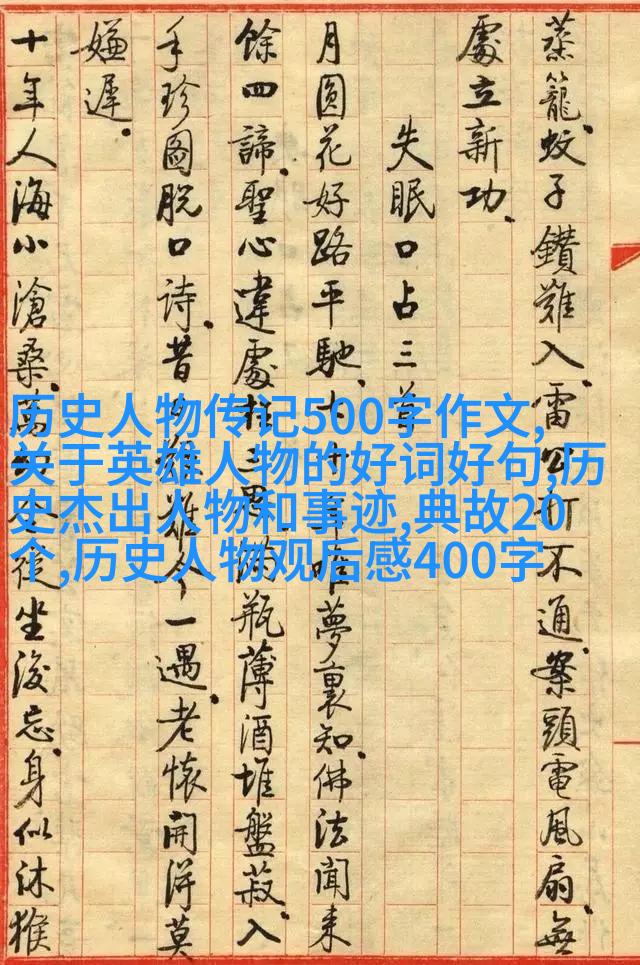 蒸籠.蚊子鑽難入.雷公打不通.案頭電風扇.無
處立新功.
失眠口占三章
月圓花好路平馳.十年唯夢裏知.佛法聞来
餘四諦.聖心違處枉三思.滿瓶薄酒堆盤菽.入
手珍圖脫口詩.昔雄今一遇.老懷開得莫
嫌遲.
十年人海小滄桑.萬坐復忘.身似沐猴
历史人物传记500字作文,
关于英雄人物的好词好句,历
史杰出人物和事迹,典故20
个,历史人物观后感400字